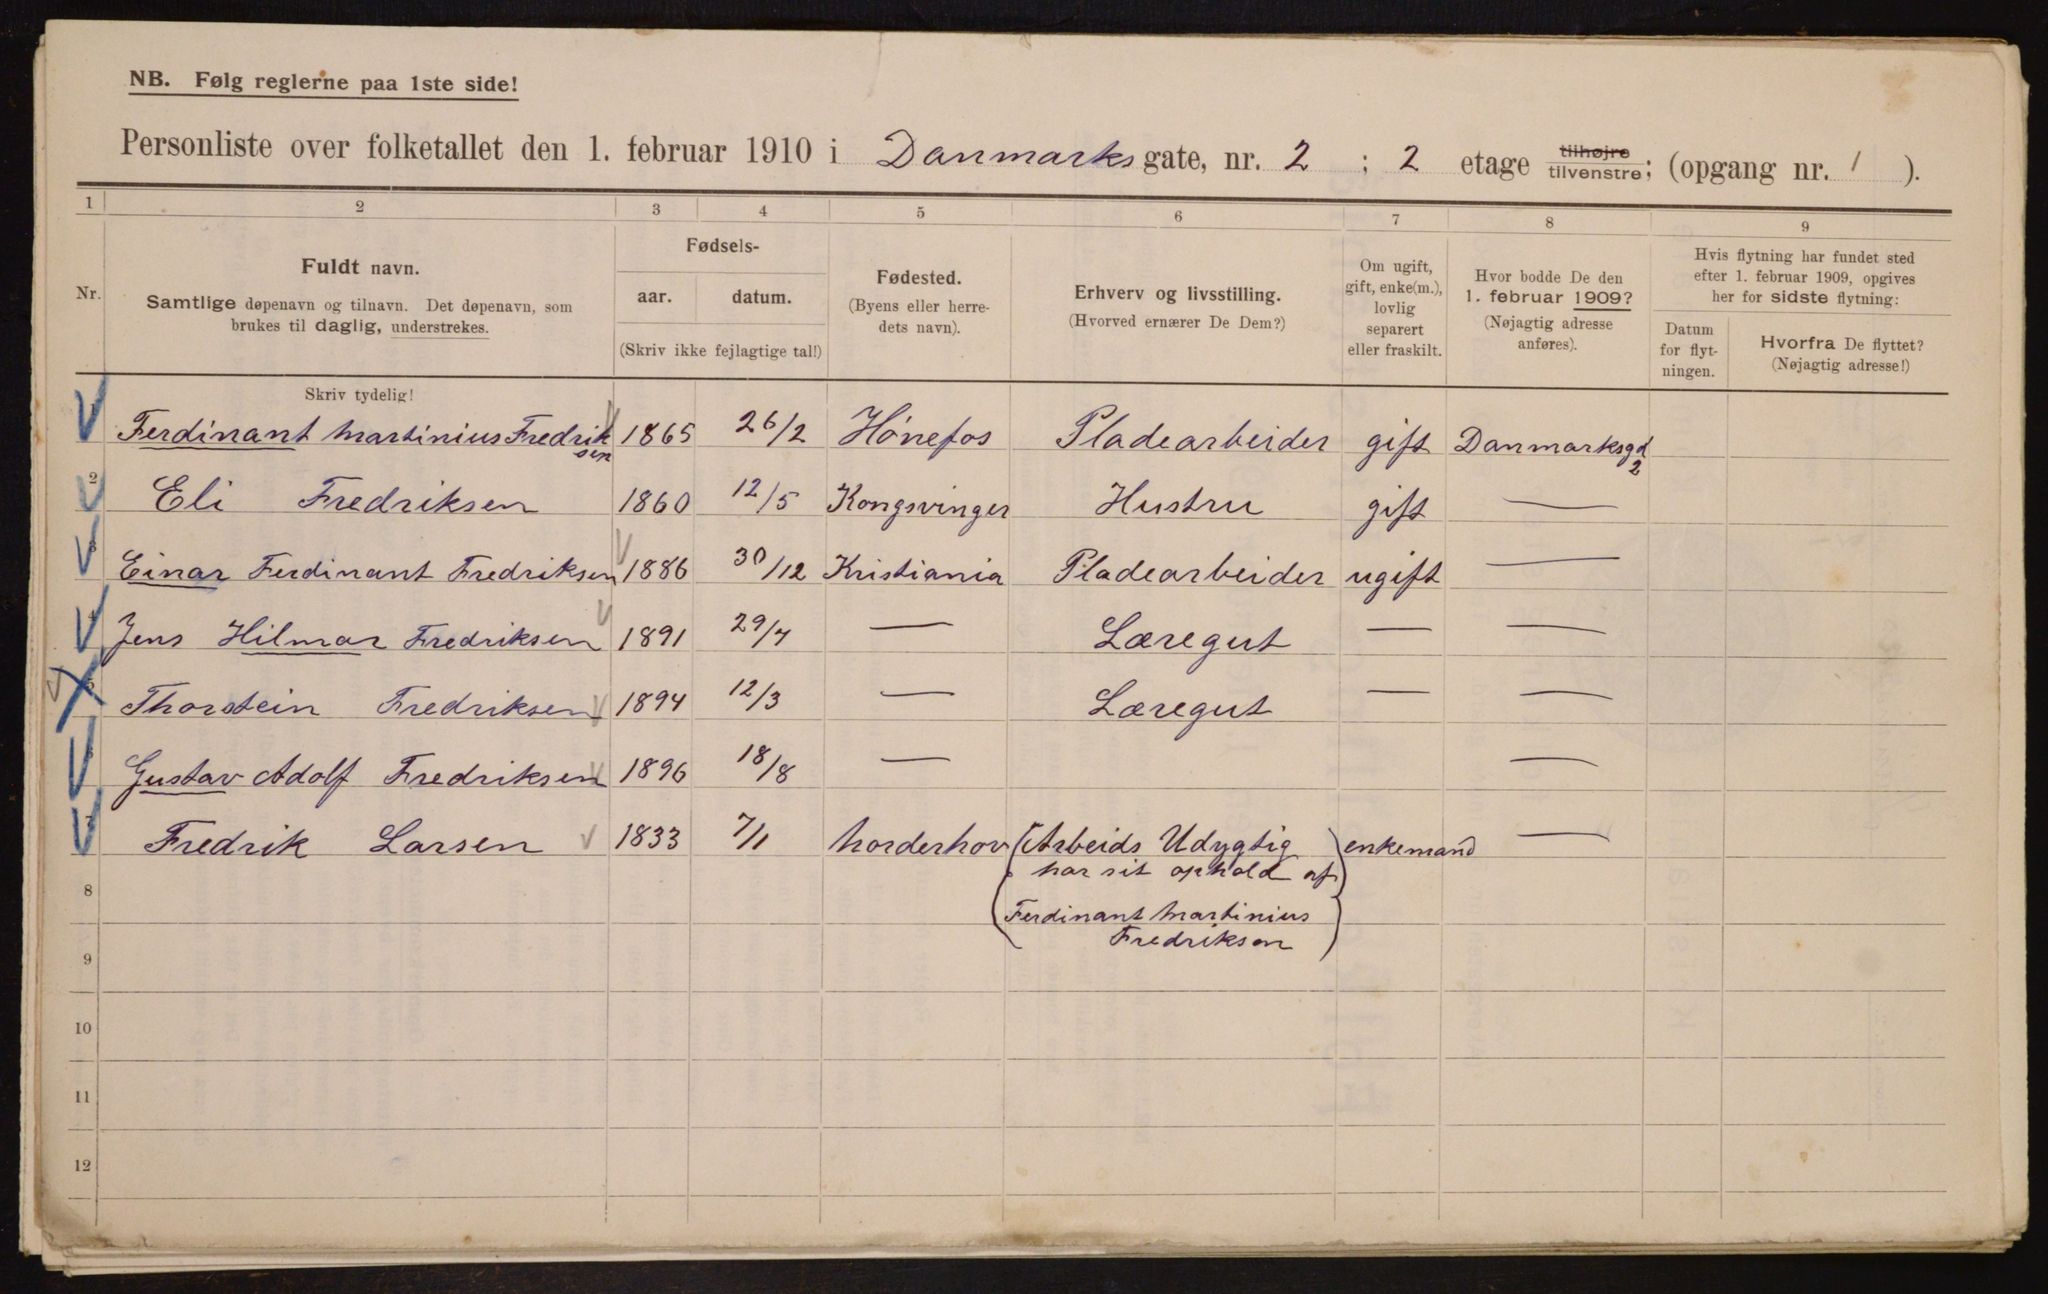 NB. Følg reglerne paa 1ste side!
Personliste over folketallet den 1. februar 1910 i Danmarks gate, nr. 2 ; 2 etage tilhøjre tilvenstre; (opgang nr. 1 ).
1 2 3 4 5 6 7 8 9
Nr.
Fuldt navn.
Samtlige døpenavn og tilnavn. Det døpenavn, som
brukes til daglig, understrekes.
Fødsels-
aar. datum.
(Skriv ikke fejlagtige tal!)
Fødested.
(Byens eller herre-
dets navn).
Erhverv og livsstilling.
(Hvorved ernærer De Dem?)
Om ugift,
gift, enke(m.),
lovlig
separert
eller fraskilt.
Hvor bodde De den
1. februar 1909?
(Nøjagtig adresse
anføres).
Hvis flytning har fundet sted
efter 1. februar 1909, opgives
her for sidste flytning:
Datum
for flyt-
ningen.
Hvorfra De flyttet?
(Nøjagtig adresse!)
Skriv tydelig!
1 Ferdinant Martinius Fredrik 1865 26/2 Hønefos Pladearbeider gift Danmarksgd
sen 2
2 Eli Fredriksen 1860 12/5 Kongsvinger Hustru gift —
3 Einar Ferdinant Fredriksen 1886 30/12 Kristiania Pladearbeider ugift —
4 Jens Hilmar Fredriksen 1891 29/7 — Læregut — —
5 Thorstein Fredriksen 1894 12/3 — Læregut — —
6 Gustav Adolf Fredriksen 1896 18/8 — —
7 Fredrik Larsen 1833 7/1 Norderhov (Arbeids Udygtig) enkemand —
har sit ophold af
8
(Ferdinant Martinius
Fredriksen)
9
10
11
12